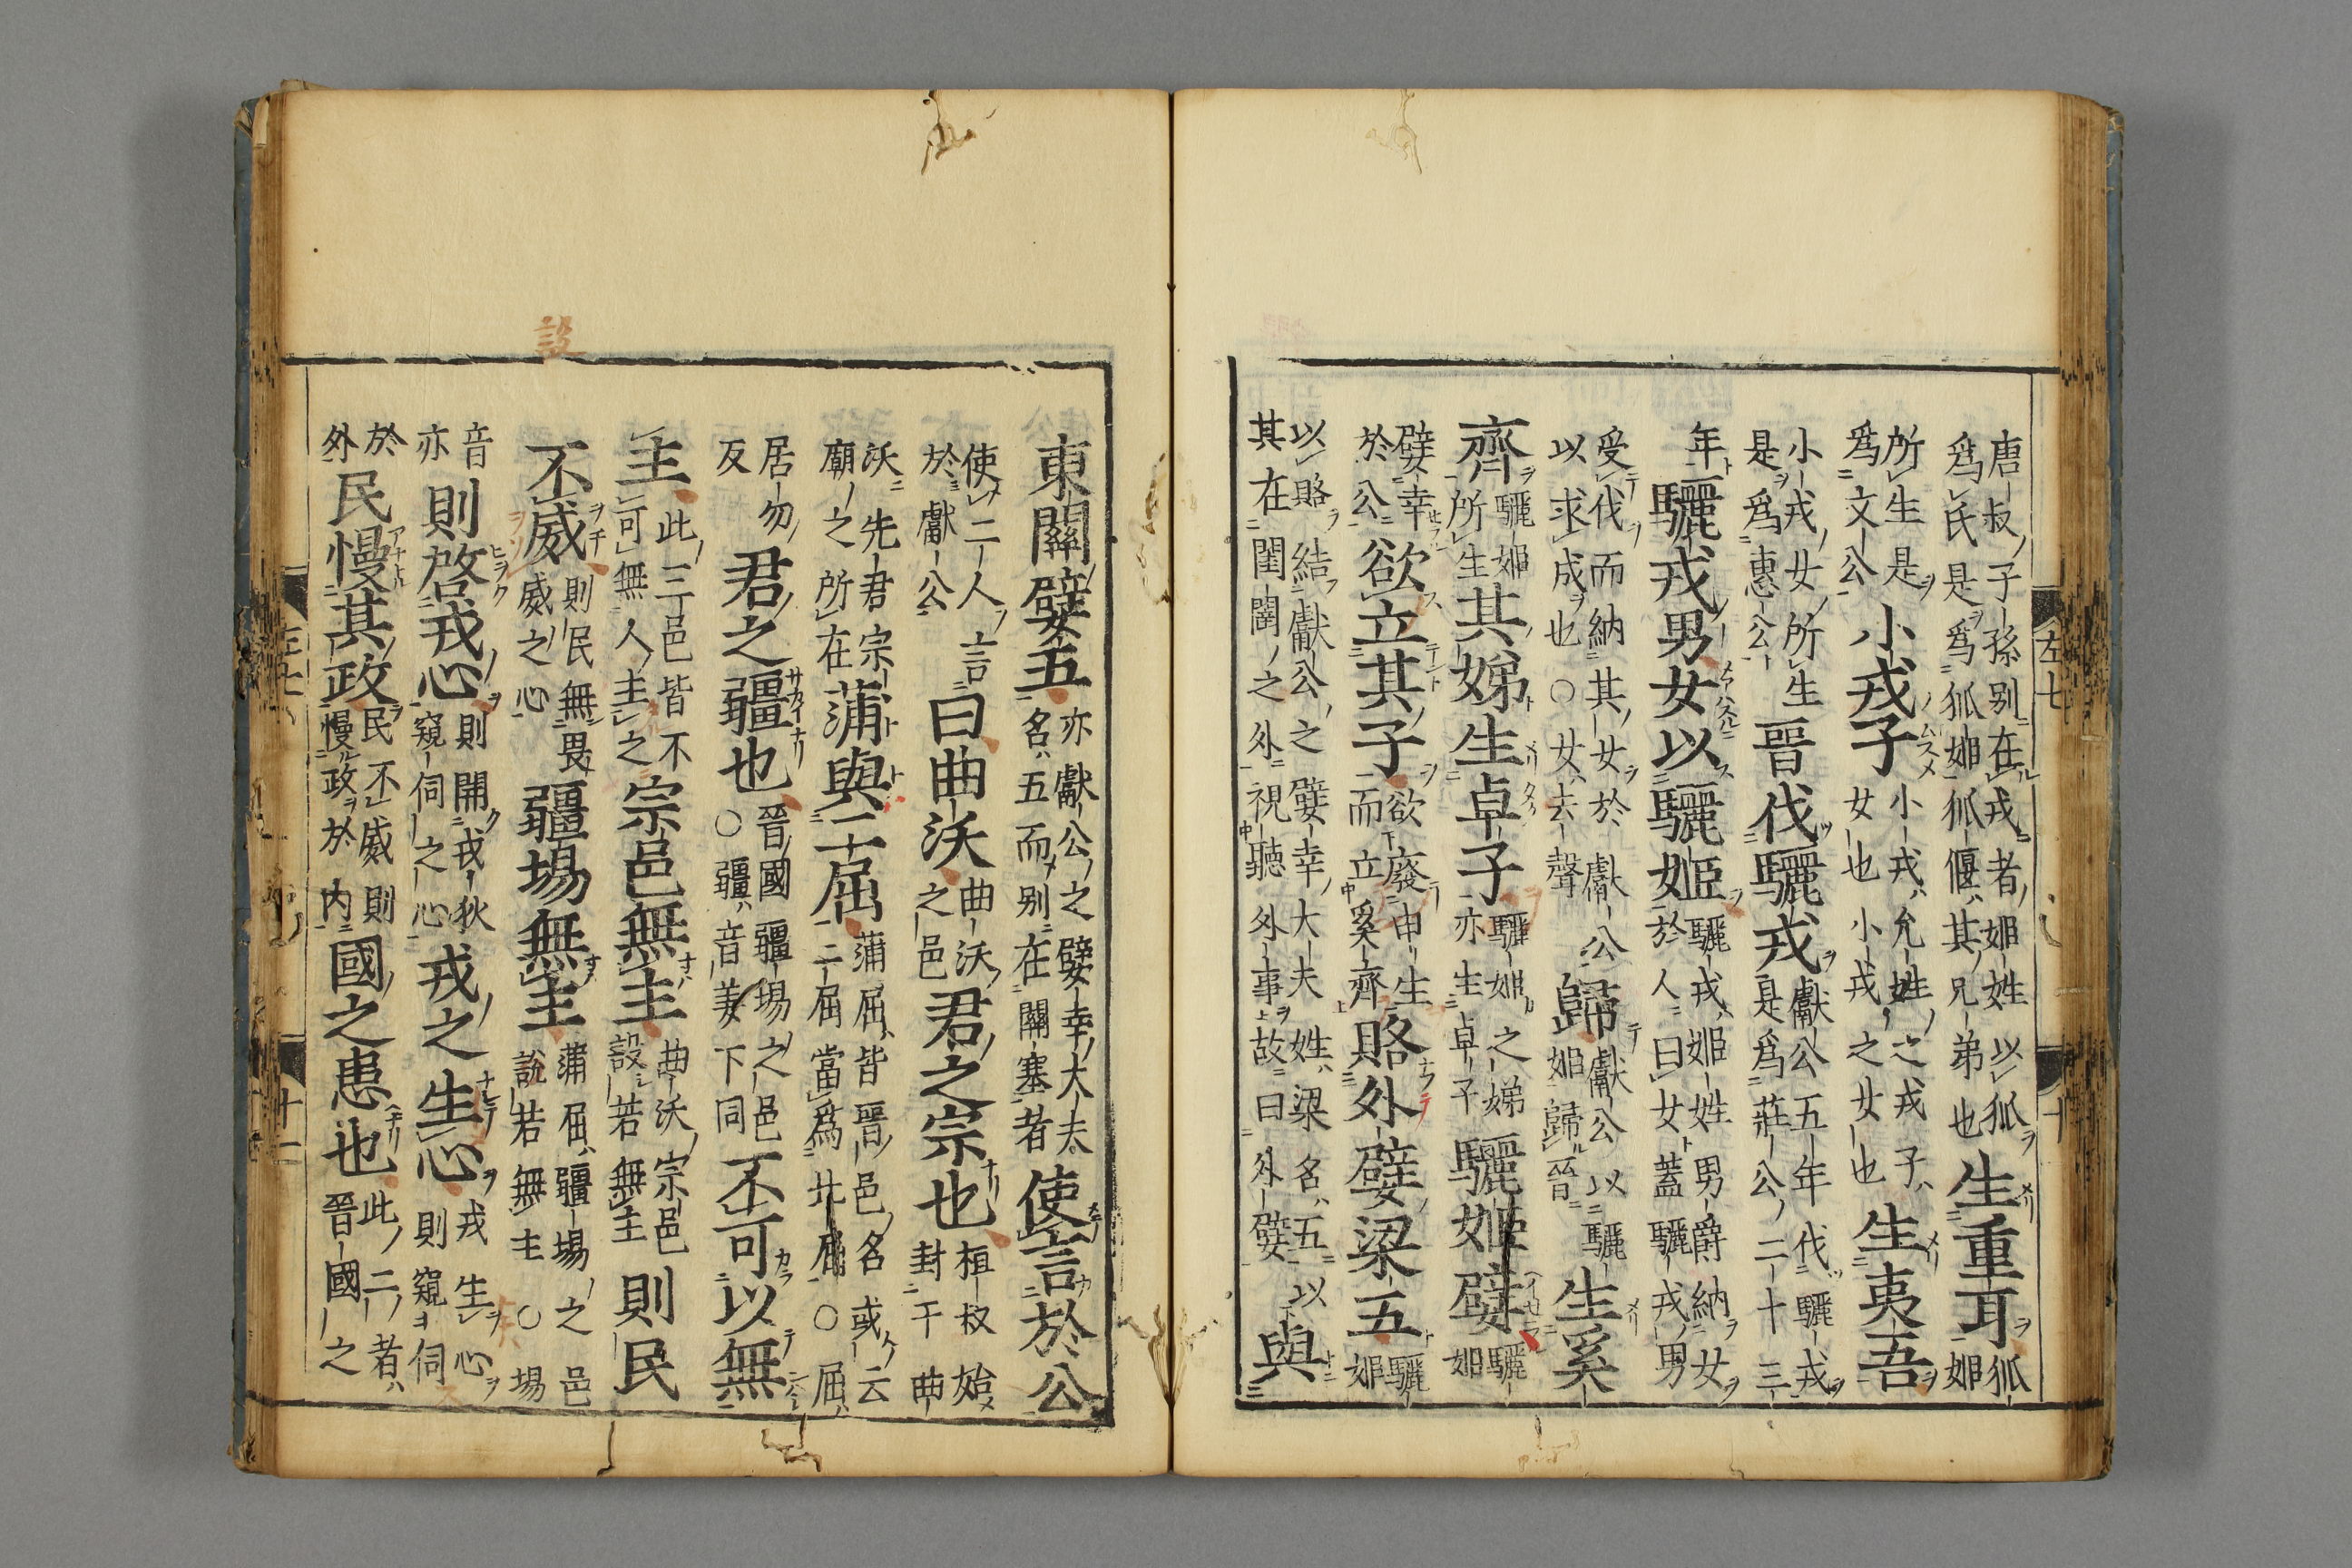 左七
十
唐叔子孫別在戎者姬姓以狐爲氏是爲狐姬狐偃其兄弟也生重耳狐姬
所生是爲文公小戎子小戎允姓之戎子女也小戎之女也生夷吾
小戎女所生是爲惠公晉伐驪戎獻公五年伐驪戎是爲莊公二十三
年驪戎男女以驪姬驪戎姬姓男爵納女於人曰女蓋驪戎男
受伐而納其女於獻公以求成也○女去聲歸獻公以驪姬歸晉生奚
齊驪姬所生其娣生卓子驪姬之娣亦生卓子驪姬嬖驪姬
嬖幸於公欲立其子欲廢申生而立奚齊賂外嬖梁五驪姬
以賂結獻公之嬖幸大夫姓梁名五以其在閨闥之外視聽外事故曰外嬖與
東關嬖五亦獻公之嬖幸大夫名五而別在關塞者使言於公
使二人言於獻公曰曲沃曲沃之邑君之宗也桓叔始封于曲
沃先君宗廟之所在蒲與二屈蒲屈皆晉邑名或云二屈當爲北屈○屈
居勿反君之疆也晉國疆埸之邑○疆音姜下同不可以無
主此三邑皆不可無人主之宗邑無主曲沃宗邑設若無主則民
設
不威則民無畏威之心疆埸無主蒲屈疆埸之邑說若無主○埸
音亦則啓戎心則開戎狄窺伺之心戎之生心戎生心則窺伺
於外民慢其政民不威則慢政於內國之患也此二者晉國之
左七
十一